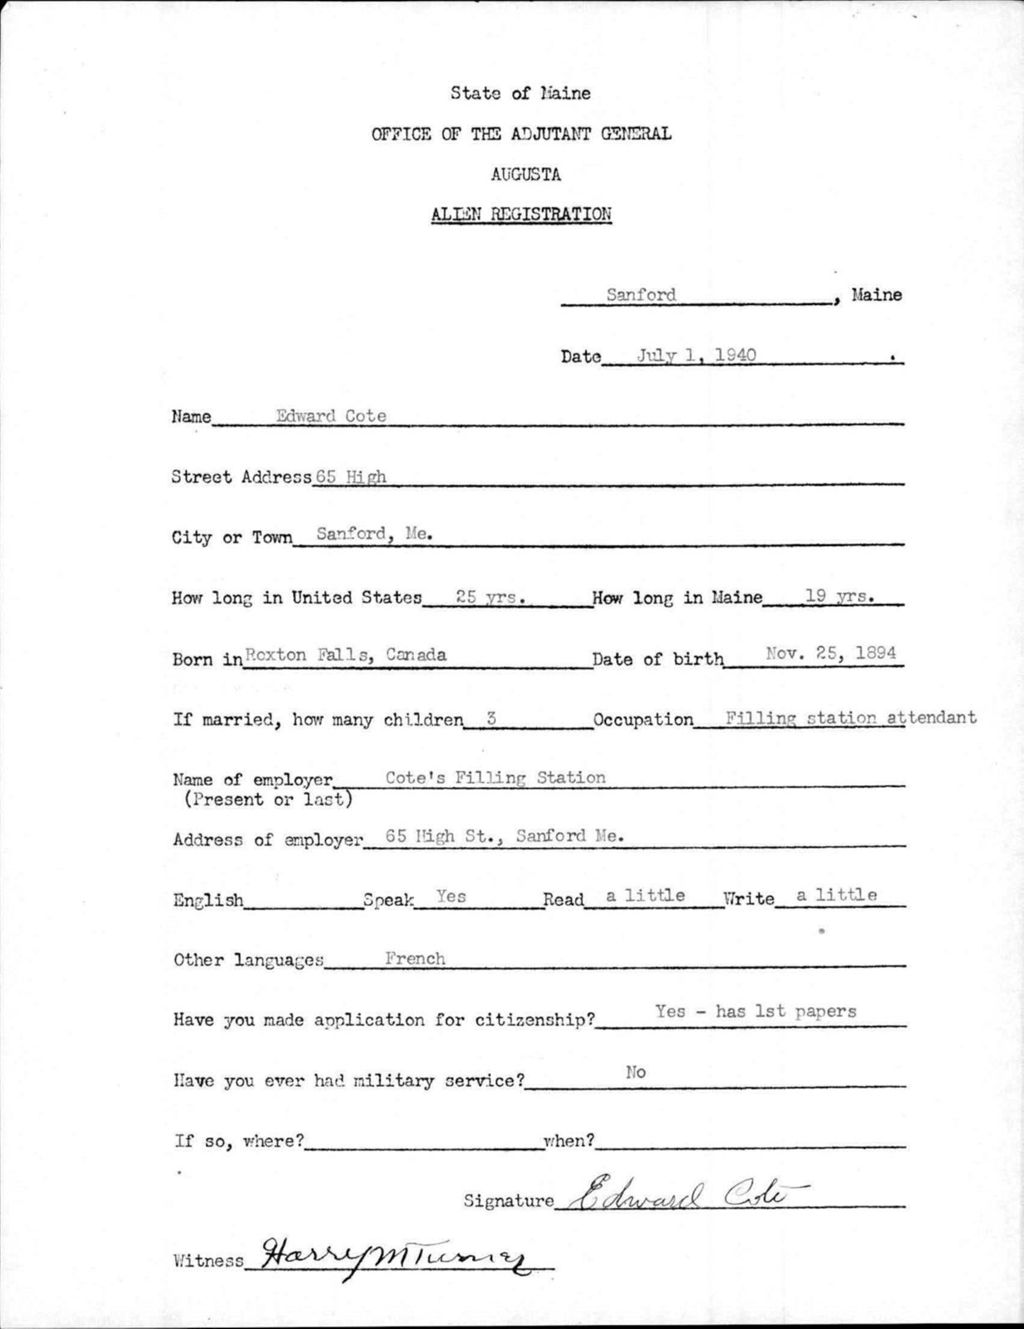 State of Maine
OFFICE OF THE ADJUTANT GENERAL
AUGUSTA
ALIEN REGISTRATION
Sanford, Maine
Date July 1, 1940.
Name Edward Cote
Street Address 65 High
City or Town Sanford, Me.
How long in United States 25 yrs. How long in Maine 19 yrs.
Born in Roxton Falls, Canada Date of birth Nov. 25, 1894
If married, how many children 3 Occupation Filling station attendant
Name of employer Cote's Filling Station
(Present or last)
Address of employer 65 High St., Sanford Me.
English Speak Yes Read a little Write a little
Other languages French
Have you made application for citizenship? Yes - has 1st papers
Have you ever had military service? No
If so, where? when?
Signature Edward Cote
Witness Harry M Turner